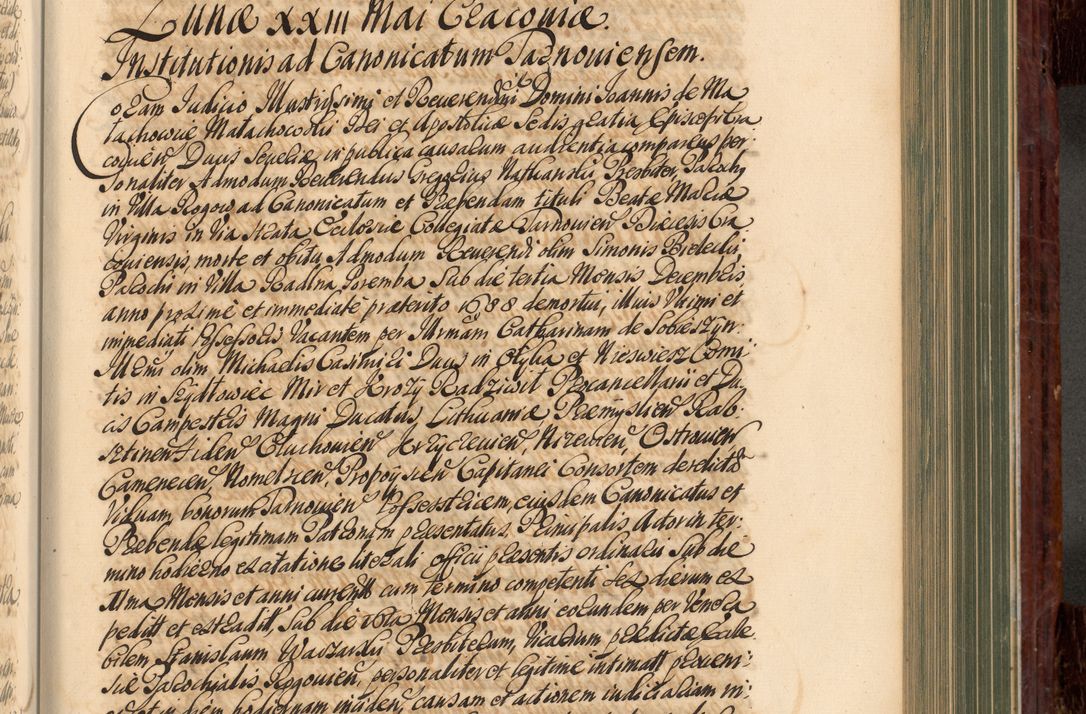 Lunæ XXIII Maii Cracoviæ.
Institutionis ad Canonicatum Tarnoviensem.
Coram Iudicio Illustrissimi et Reverendissimi Domini Ioannis de Ma
łachowice Małachowski Dei et Apostolicæ Sedis gratia Episcopi Cra
covien Ducis Severiæ, in publica causarum audientia comparens per:
sonaliter Admodum Reverendus Gregorius Presbiter, Parochus
in Villa Rogow ad Canonicatum et Præbendam tituli Beatæ Mariæ
Virginis in Via Strata Ecclesiæ Collegiatæ Tarnovien Diæcesis Cra
coviensis, morte et obitu Admodum Reverendi olim Simonis
Parochi in Villa Radlna Poremba Sub die tertia Mensis Decembris,
anno proxime et immediate præterito 1688 demortui, illius Ultimi et
immediati Possessoris Vacantem per Illrmam Catharinam de Sobieszyn:
Illmi olim Michaelis Casimiri Ducis in Olyka et Nieswierz Comi
tis in Szydłowiec Mir et Krozy Radziwił Procancellarii et Du
cis Campestris Magni Ducatus Lithuaniæ Præmyslien Rab:
sztinen Liden Człuchovien Krzyczevien, Nizevien, Ostrovien
Camenecien Homelscien, Propoyscien Capitanei Consortem derelictā
Viduam, bonorum Tarnovien Possessricem, eiusdem Canonicatus et
Præbendæ legitimam Patronam præsentatus, Principalis Actor in ter:
mino hodierno ex citatione literali officii præsentis ordinarii Sub die
XIma Mensis et anni currentt cum termino competenti Sex dierum ex
peditt et extradit, Sub die vero Mensis et anni eorundem per Venera
bilem Stanislaum Presbiterum, Vicarium prædictæ Eccle
siæ Parochialis Rogovien, personaliter et legitime intimatt proveni:
hodiernam incidens, causam et actionem iudiciariam in: